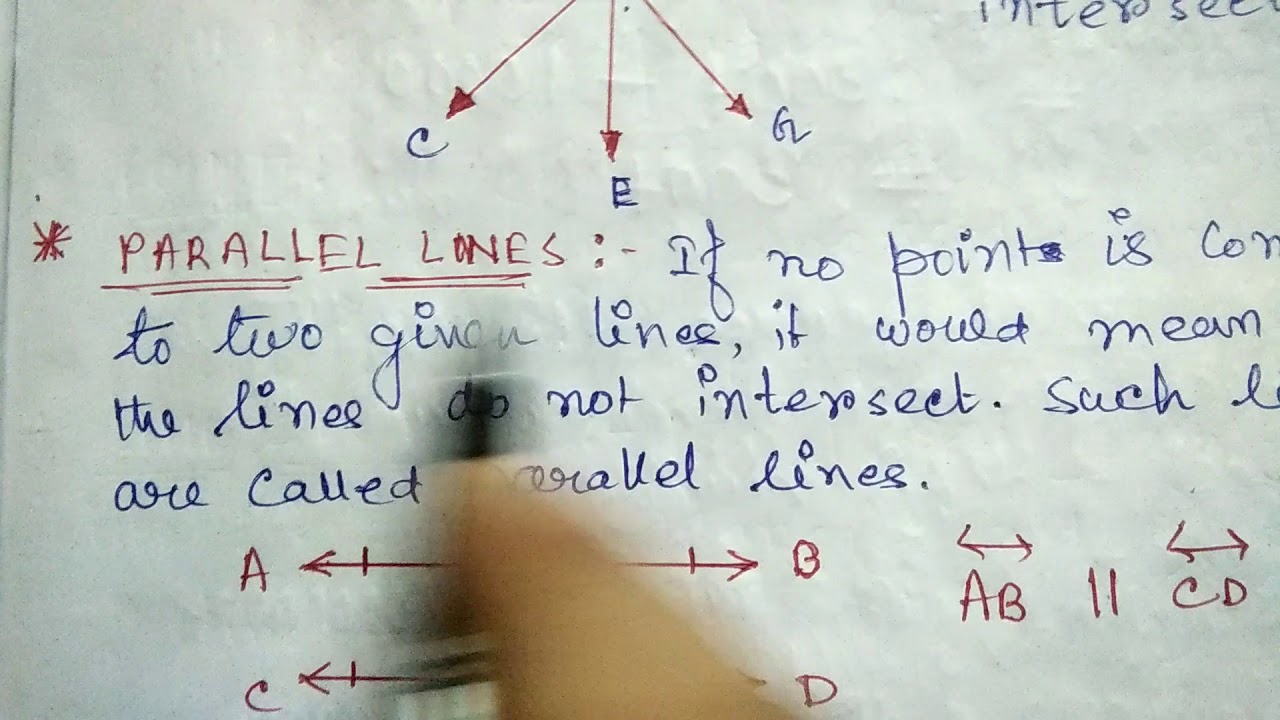 intersect
C
G
E
* PARALLEL LINES :- If no points is com
to two given lines, it would mean
the lines do not intersect. Such li
are called parallel lines.
A B AB || CD
C D